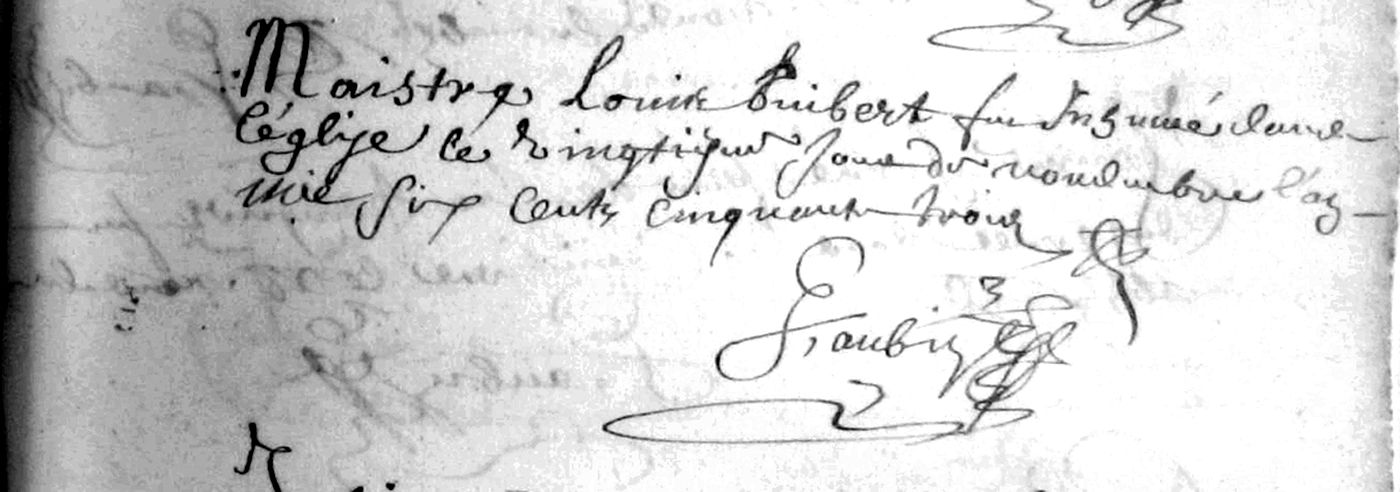 Maistre Louis Guibert fut Inhumé dans
l'église le vingtiesme Jour de novembre l'an
mil six cents cinquante trois